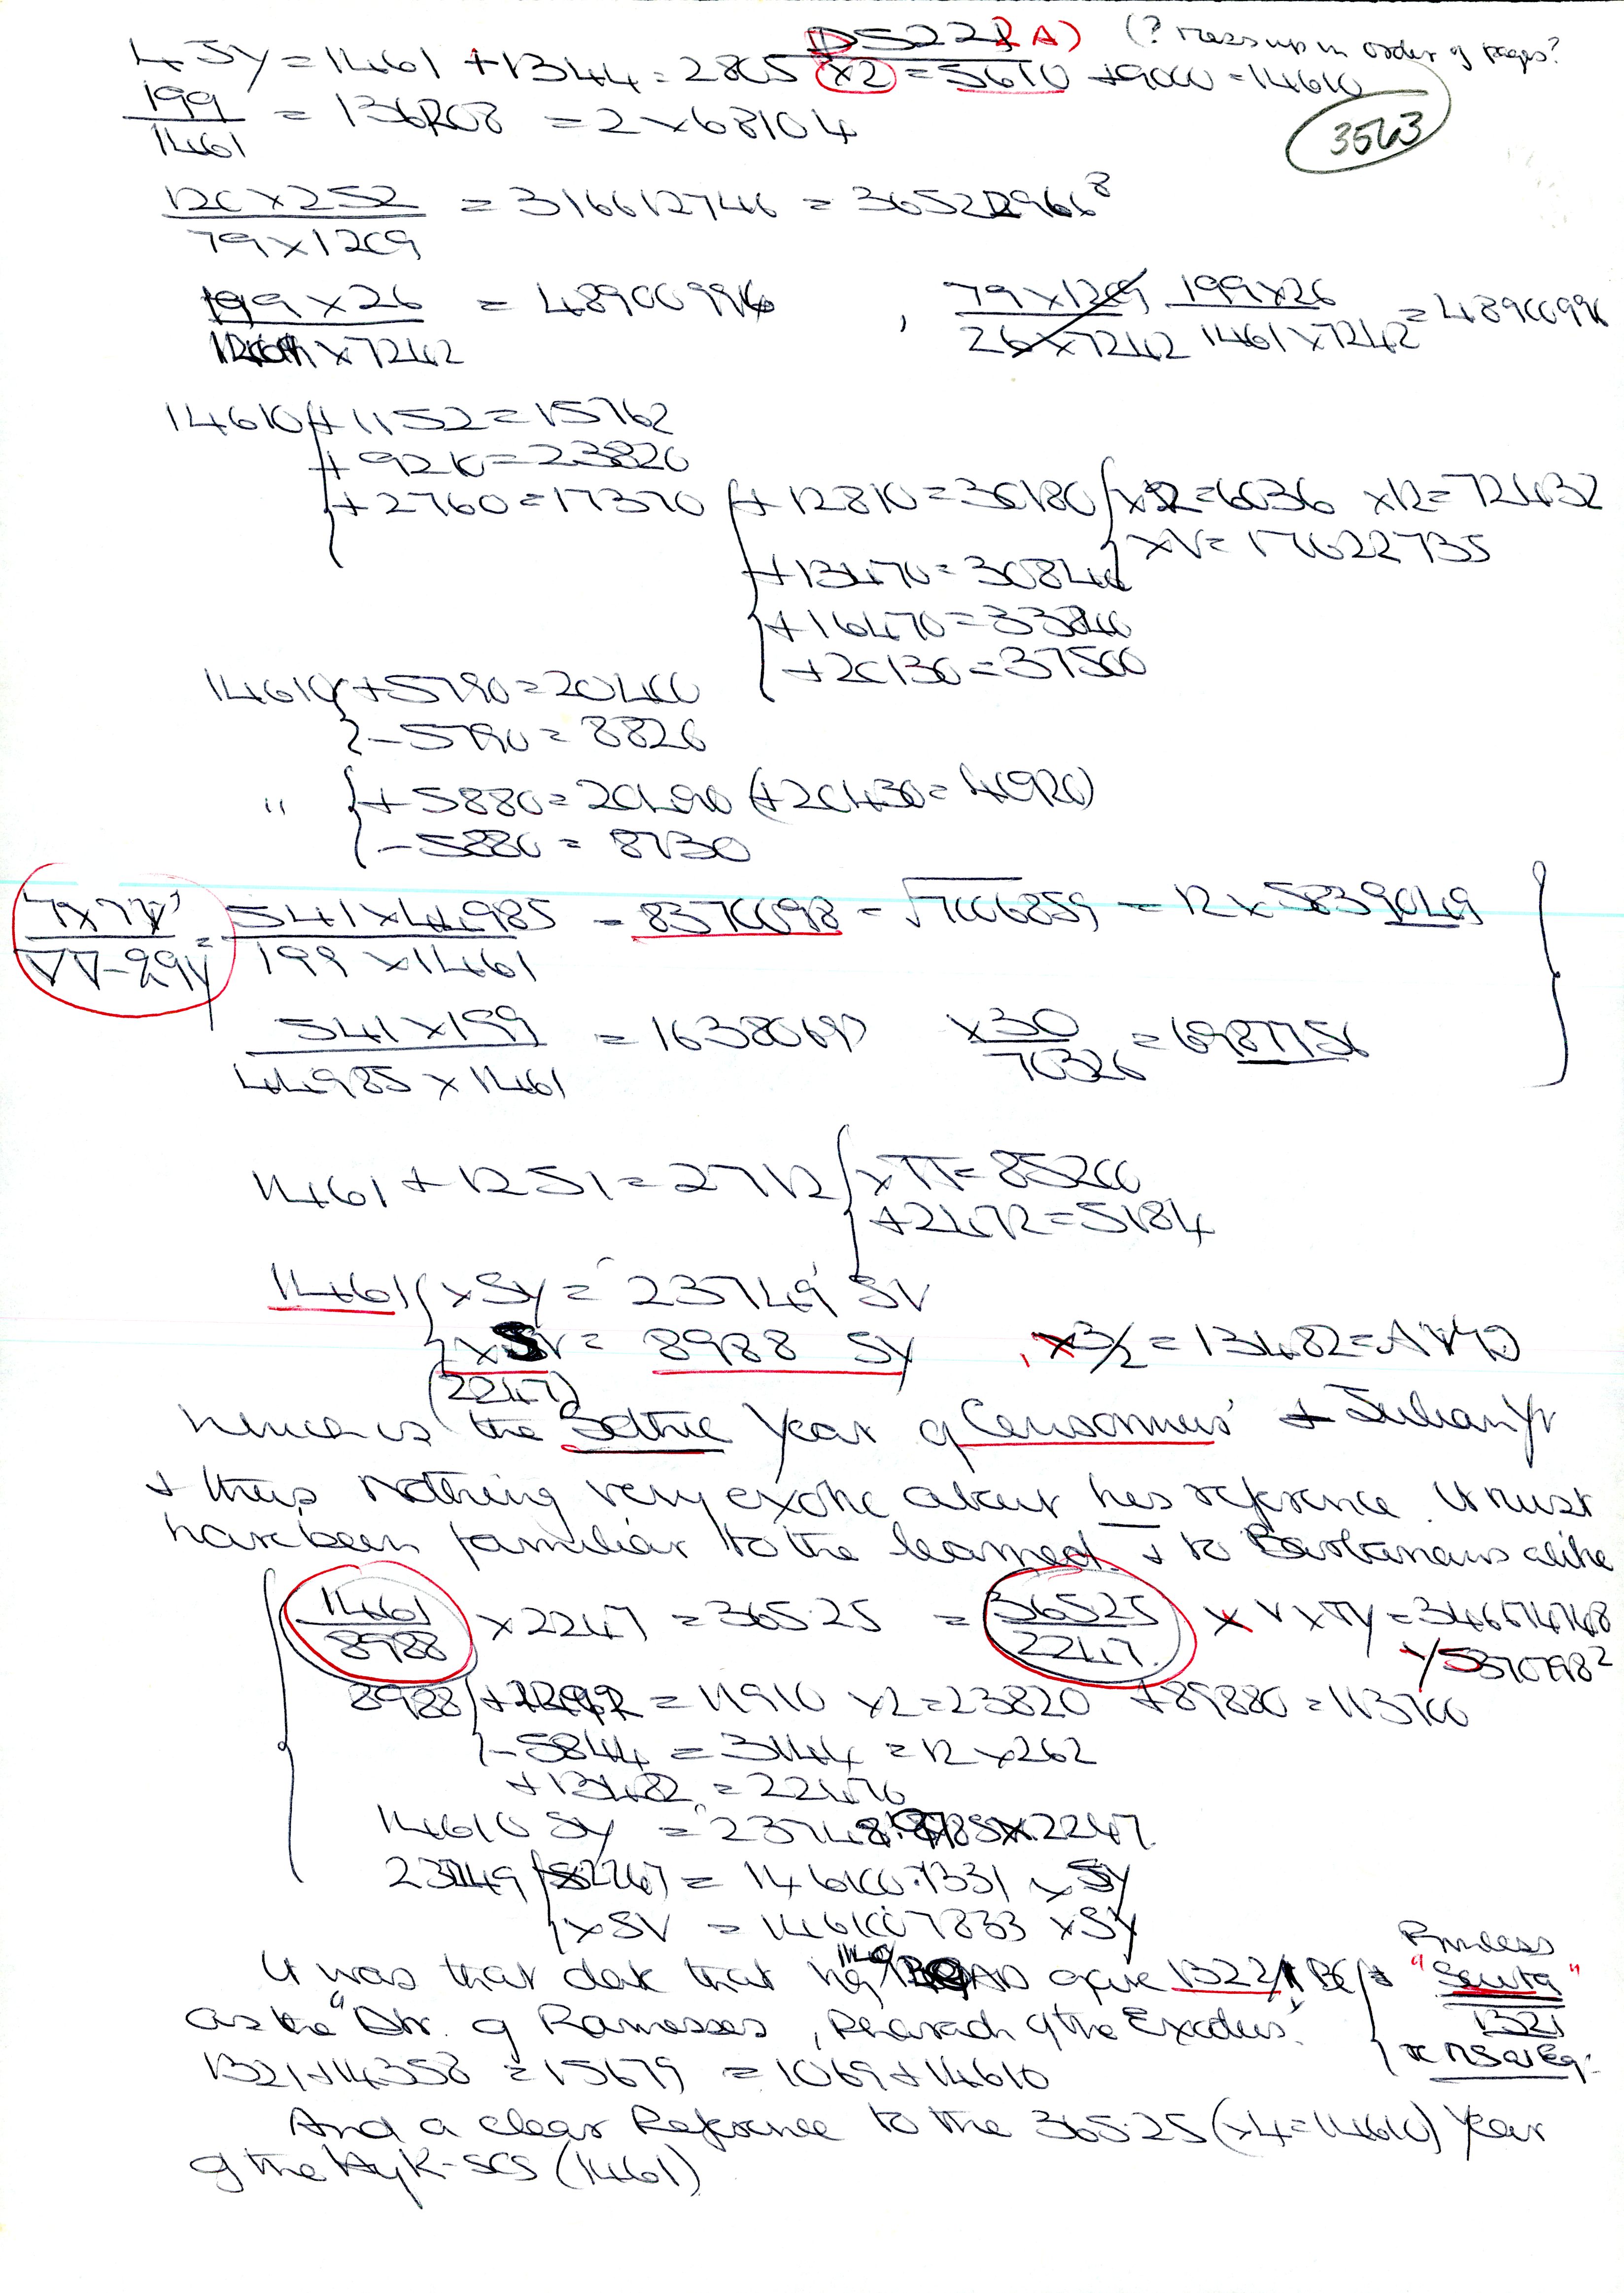 D522 2 A) (? mess up in order of pages?
4 Jy = 1461 + 1344 = 2805 x2 = 5610 + 9000 = 14610
3563
199/1461 = 136208 = 2 x 68104
120 x 252 / 79 x 1209 = 316612746 = 365222966⁸
199 x 26 / x 7242 = 48900996 , 79 x 1209 / 26 x 7242 199 x 26 / 1461 x 7242 = 48900996
14610 + 1152 = 15762
+ 9210 = 23820
+ 2760 = 17370 + 12810 = 30180 x 2 = 6036 x 12 = 72432
x V = 17622735
+ 13470 = 30840
+ 16470 = 33840
+ 20130 = 37500
14610 + 5790 = 20400
- 5790 = 8820
" + 5880 = 20490 (+ 20430 = 40920)
- 5880 = 8730
541 x 44985 / 199 x 1461 = 83700098 = √7006859 = 12 x 5839049
541 x 199 / 44985 x 1461 = 16380690 x 30 / 70326 = 6987756
1461 + 1251 = 2712 x π = 85200
+ 2472 = 5184
1461 x Sy = 23749 SV
x SV = 8988 Sy , x 3/2 = 13482 =
(2247)
hence is the Sothic Year of Censorinus + Julian Yr
+ thus nothing very exotic about his reference. It must
have been familiar to the learned + to Barbarians alike
1461/8988 x 2247 = 365.25 = 36525/2247 x V x πy = 346674748
√5370798²
8988 + = 11910 x 2 = 23820 + 89880 = 113700
- 5844 = 3144 = 12 x 262
+ 13482 = 22470
14610 Sy = x 2247
23749 x 2247 = 146100.1331 x Sy
x SV = 146100 7833 x Sy
It was that date that AD gave 1322/1 BC Princess "Scota"
as the "Dtr. of Ramesses, Pharaoh of the Exodus". 1321
1321 + 14358 = 15679 = 1069 + 14610
And a clear Reference to the 365.25 (x 4 = 14610) Year
of the HyK-SOS (1461)